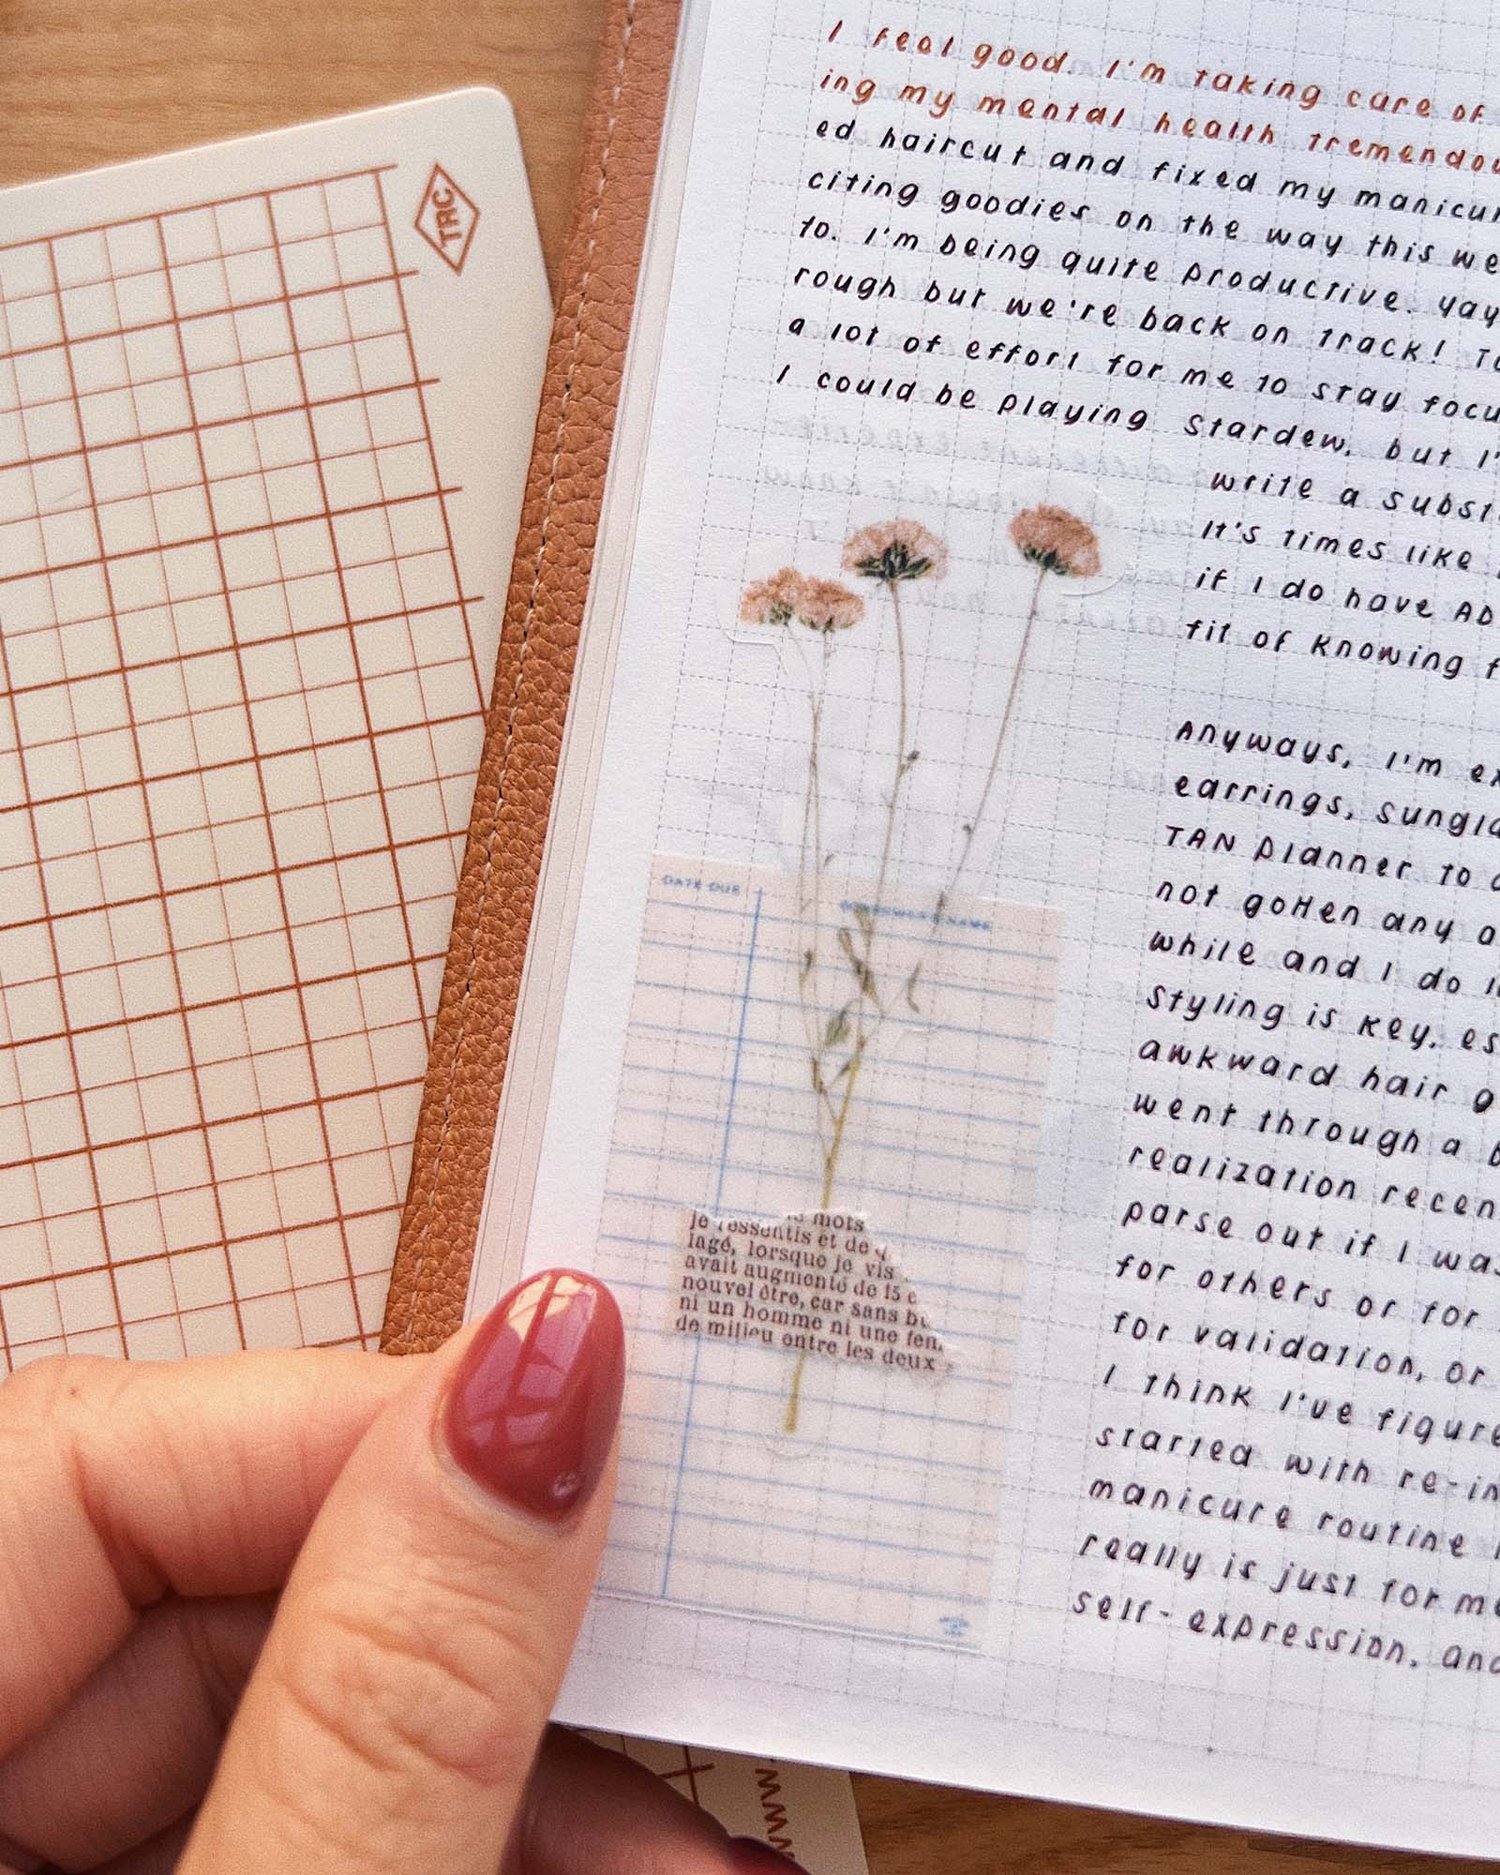 TRC
I feel good. I'm taking care of
ing my mental health tremendou
ed haircut and fixed my manicur
citing goodies on the way this we
to. I'm being quite productive. yay
rough but we're back on track! To
a lot of effort for me to stay focu
I could be playing Stardew, but I'
write a subst
It's times like
if I do have AD
fit of knowing f
Anyways, I'm ex
earrings, sungla
TAN planner to
not gotten any a
while and I do
Styling is key, es
awkward hair g
went through a
realization recen
parse out if I was
for others or for
for validation, or
I think I've figure
started with re-in
manicure routine
really is just for me
self-expression, and
DATE DUE
BORROWER'S NAME
mots
je ressentis et de
lagé, lorsque je vis
avait augmenté de 15 c
nouvel être, car sans bu
ni un homme ni une fem
de milieu entre les deux
www